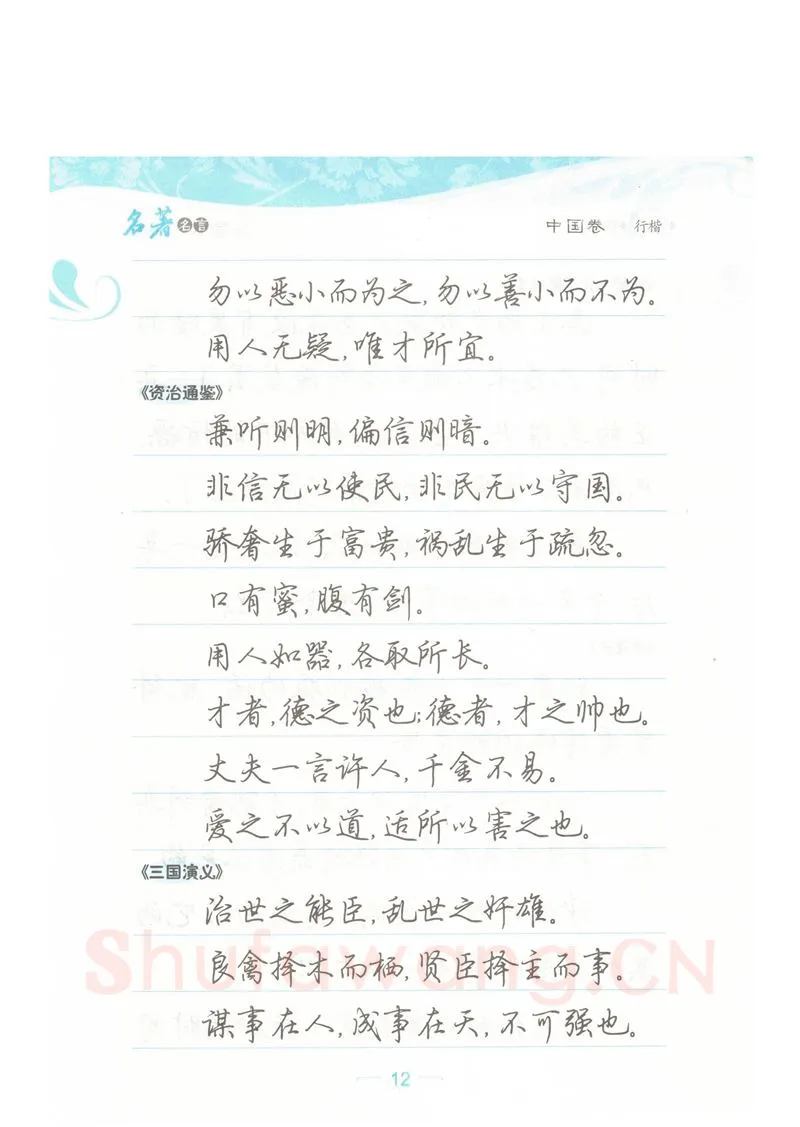 名著名言
中国卷 行楷
勿以恶小而为之,勿以善小而不为。
用人无疑,唯才所宜。
《资治通鉴》
兼听则明,偏信则暗。
非信无以使民,非民无以守国。
骄奢生于富贵,祸乱生于疏忽。
口有蜜,腹有剑。
用人如器,各取所长。
才者,德之资也;德者,才之帅也。
丈夫一言许人,千金不易。
爱之不以道,适所以害之也。
《三国演义》
治世之能臣,乱世之奸雄。
良禽择木而栖,贤臣择主而事。
谋事在人,成事在天,不可强也。
Shufawang.CN
12